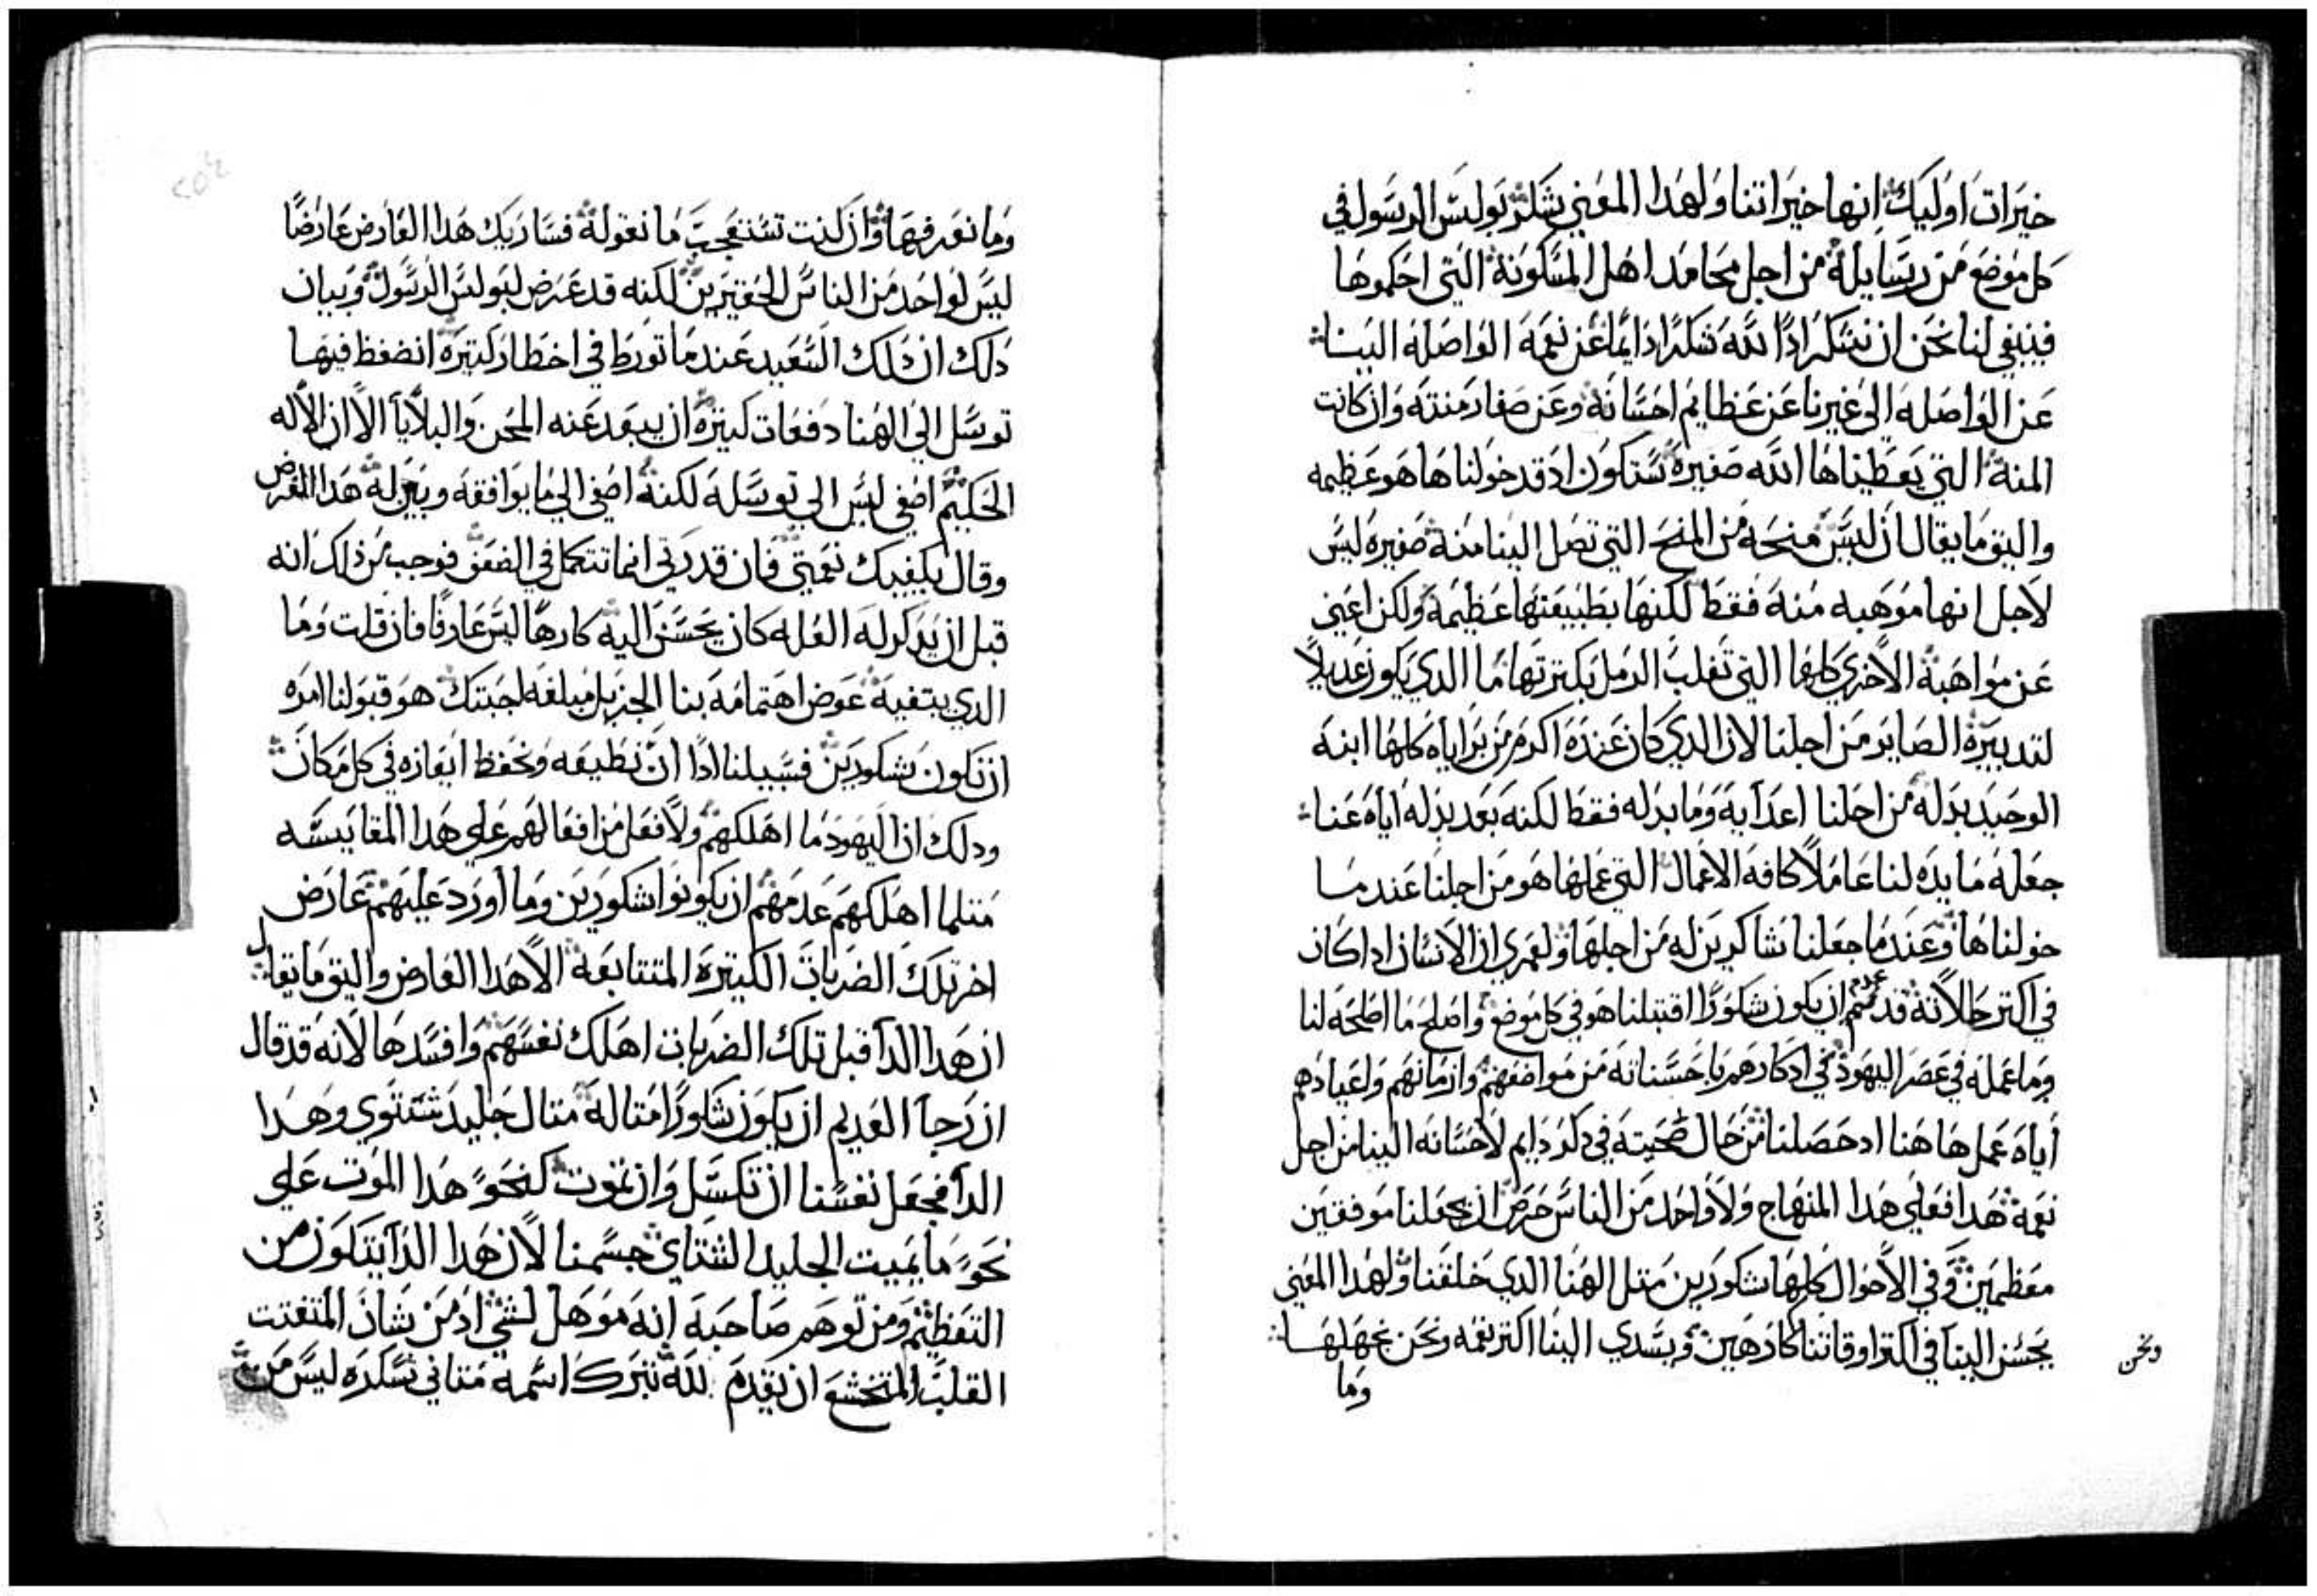 خيرات اوليك انها خيراتنا ولهدا المعني يشكر بولس الرسول في
كل موضع من رسايله من اجل محامد اهل المسكونة التي احكموها
فينبغي لنا نحن ان نشكر ادًا الله شكرًا دايمًا عن نعمه الواصله الينا
عن الواصله الي غيرنا عن عظايم احسانه وعن صغار منته وان كانت
المنة التي يعطيناها الله صغيره ستكون اد قد خولناها هو عظيمه
واليق ما يقال ان ليس منحه من المنح التي تصل الينا منه صغيره ليس
لاجل انها موهبه منه فقط لكنها بطبيعتها عظيمه ولكن اعني
عن مواهبه الاخري كلها التي تغلب الرمل بكترتها ما الدي يكون عديلاً
لتدبيره الصاير من اجلنا لان الدي كان عنده اكرم من براياه كلها ابنه
الوحيد بدله من اجلنا اعدايه وما بدله فقط لكنه بعد بدله اياه عنا
جعله مايده لنا عاملاً كافة الاعمال التي عملها هو من اجلنا عندما
خولناها وعندما جعلنا شاكرين له من اجلها ولعمري ان الانسان ادا كان
في اكتر حالاته قد عدم ان يكون شكورًا اقتبلنا هو في كل موضع واصلح ما اصلحه لنا
وما عمله في عصر اليهود في ادكارهم باحسناته من مواضعهم وازمانهم واعيادهم
اياه عمل هاهنا اد حصلنا من حال ضحيته في دكر دايم لاحسانه الينا من اجل
نعمة هدا فعلي هدا المنهاج ولا واحد من الناس حرص ان يجعلنا موفقين
معظمين وفي الاحوال كلها شكورين متل الهنا الدي خلقنا ولهدا المعني
يحسن الينا في اكتر اوقاتنا كارهين ويسدي الينا اكتر نعمه ونحن نجهلها
ونحن
وما
وما نعرفها وان كنت تستعجب ما نقوله فساريك هدا العارض عارضًا
ليس لواحد من الناس الحقيرين لكنه قد عرض لبولس الرسول وبيان
دلك ان دلك السعيد عندما تورط في اخطار كتيرة انضغط فيها
توسل الي الهنا دفعات كتيرة ان يبعد عنه المحن والبلايا الا ان الاله
الحكيم اصغي ليس الي توسله لكنه اصغي الي ما يوافقه وبين له هدا الغرض
وقال يكفيك نعمتي فان قدرتي انما تتكمل في الضعف فوجب من ذلك انه
قبل ان يدكر له العله كان يحسن اليه كارهًا ليس عارفًا فان قلت وما
الدي يبتغيه عوض اهتمامه بنا الجزيل مبلغه اجبتك هو قبولنا امره
ان نكون شكورين فسبيلنا ادًا ان نطيعه ونحفظ ايعازه في كل مكان
ودلك ان اليهود ما اهلكهم ولا فعل من افعالهم علي هدا المقايسه
متلما اهلكهم عدمهم ان يكونوا شكورين وما اورد عليهم عارض
اخر تلك الضربات الكتيرة المتتابعة الا هدا العارض واليق ما يقال
ان هدا الدا قبل تلك الضربات اهلك نفسهم وافسدها لانه قد قال
ان رجا العديم ان يكون شكورًا متاله متال جليد شتوي وهدا
الدا فجعل نفسنا ان تكسل وان تموت كنحو هدا الموت علي
نحو ما يميت الجليد الشتاي جسمنا لان هدا الدا يتكون من
التعظيم ومن توهم صاحبه انه موهل لشي اد من شان المتفتت
القلب المتخشع ان يقدم لله تبرك اسمه متاني تشكره ليس من